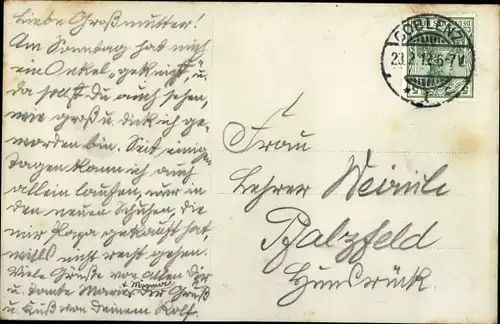 Liebe Großmutter!
Am Sonntag hat mich
ein Onkel „geknipst", u.
da sollst Du auch sehen,
wie groß u. dick ich ge-
worden bin. Seit einigen
Tagen kann ich auch
allein laufen, nur in
den neuen Schuhen, die
mir Papa gekauft hat,
wills nicht recht gehen.
Viele Grüße von allen Dir
u. Tante Marie. Dir Gruß
u. Kuß von Deinem Rolf.
COBLENZ
6-7V
Frau
Lehrer
Pfalzfeld
Hunsrück.